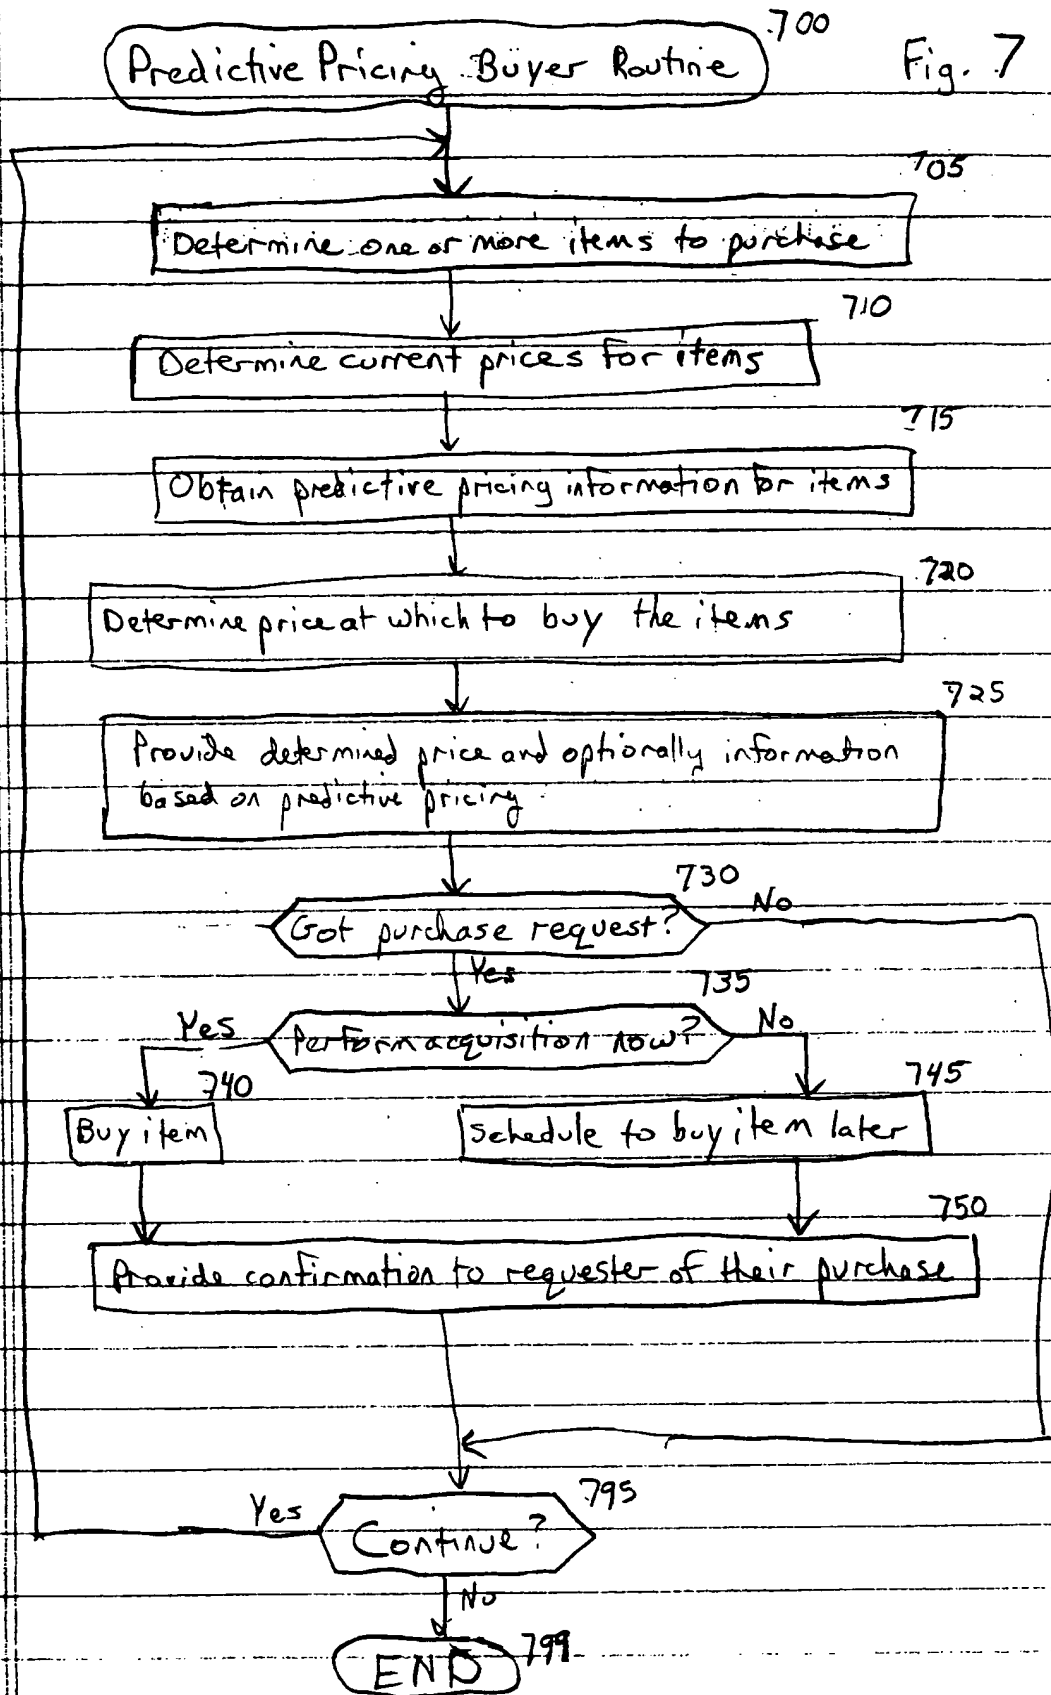 700
Predictive Pricing Buyer Routine
Fig. 7
705
Determine one or more items to purchase
710
Determine current prices for items
715
Obtain predictive pricing information for items
720
Determine price at which to buy the items
725
Provide determined price and optionally information
based on predictive pricing
730
Got purchase request?
No
Yes
735
Perform acquisition now?
Yes
No
740
Buy item
745
Schedule to buy item later
750
Provide confirmation to requester of their purchase
795
Continue?
Yes
No
END
799